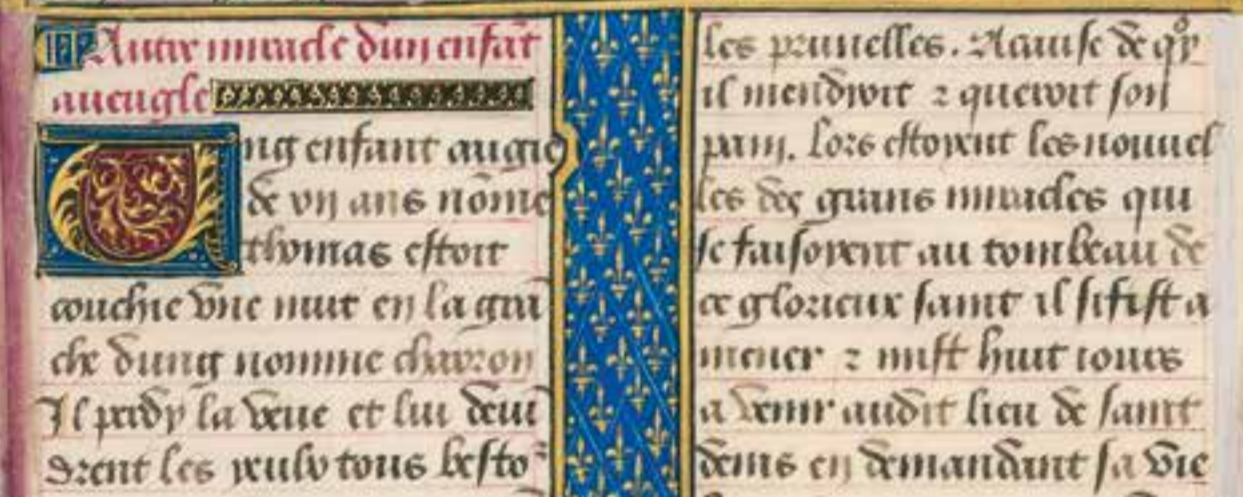 Autre miracle dun enfāt
aueugle
Ung enfant aagie
de vij ans nōme
thomas estoit
couchie vne nuit en la grā
che dung nomme charron
Il perdy la veue et lui deui
drent les yeulx tous besto
les prunelles. A cause de quoy
il mendioit ⁊ queroit son
pain. Lors estoient les nouuel
les des grans miracles qui
se faisoient au tombeau de
ce glorieux saint il sifist a
mener ⁊ mist huit iours
a venir audit lieu de saint
denis en demandant sa vie